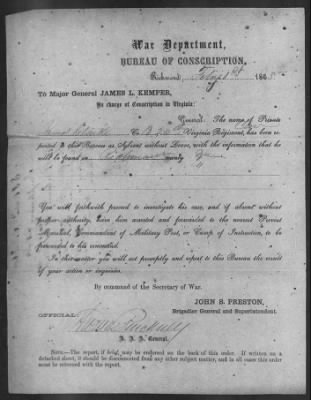 War Department,
BUREAU OF CONSCRIPTION,
Richmond, Feby 1st 1865
To Major General JAMES L. KEMPER,
In charge of Conscription in Virginia:
General: The name of Private
Co. B 26 Virginia Regiment, has been re-
ported to this Bureau as Absent without Leave, with the information that he
will be found in county
You will forthwith proceed to investigate his case, and if absent without
proper authority, have him arrested and forwarded to the nearest Provost
Marshal, Commandant of Military Post, or Camp of Instruction, to be
forwarded to his command.
In this matter you will act promptly and report to this Bureau the result
of your action or inquiries.
By command of the Secretary of War.
JOHN S. PRESTON,
Brigadier General and Superintendent.
OFFICIAL:
A. A. General.
NOTE.—The report, if brief, may be endorsed on the back of this order. If written on a
detached sheet, it should be disconnected from any other subject matter, and in all cases this order
must be returned with the report.